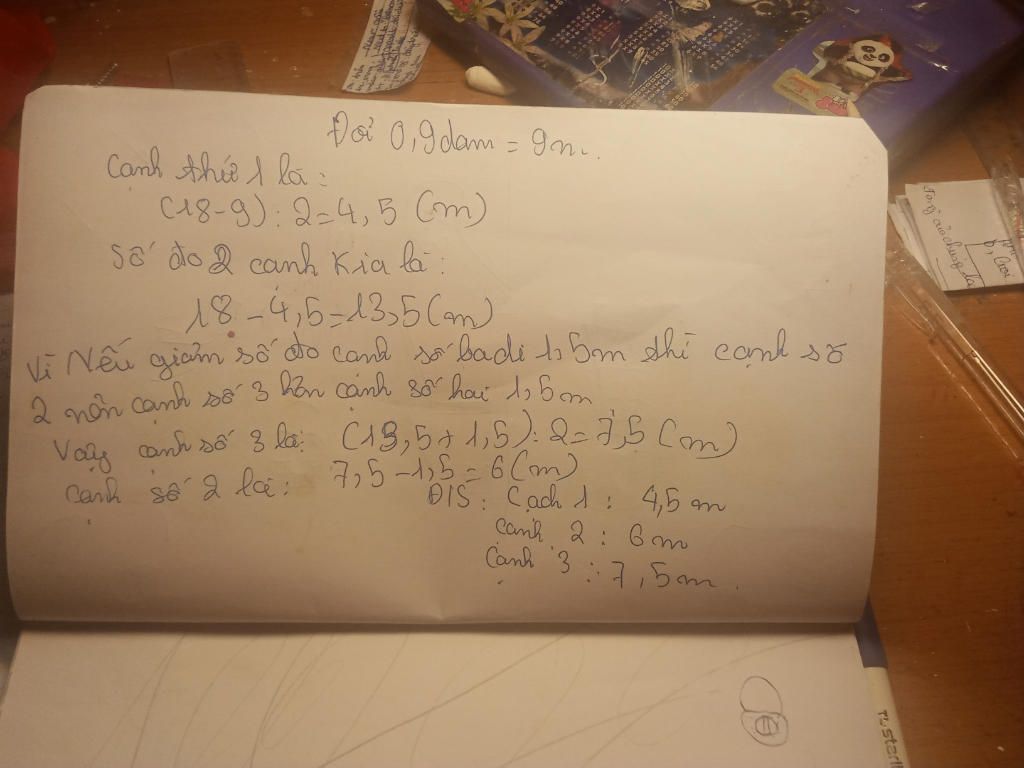 Đổi 0,9dam = 9m.
Cạnh thứ 1 là:
(18-9) : 2 = 4,5 (m)
Số đo 2 cạnh kia là:
18 - 4,5 = 13,5 (m)
Vì Nếu giảm số đo cạnh số ba đi 1,5m thì cạnh số
2 nên cạnh số 3 hơn cạnh số hai 1,5m
Vậy cạnh số 3 là: (13,5 + 1,5) : 2 = 7,5 (m)
Cạnh số 2 là: 7,5 - 1,5 = 6 (m)
Đ/S : Cạch 1 : 4,5 m
canh 2 : 6 m
Cạnh 3 : 7,5 m.